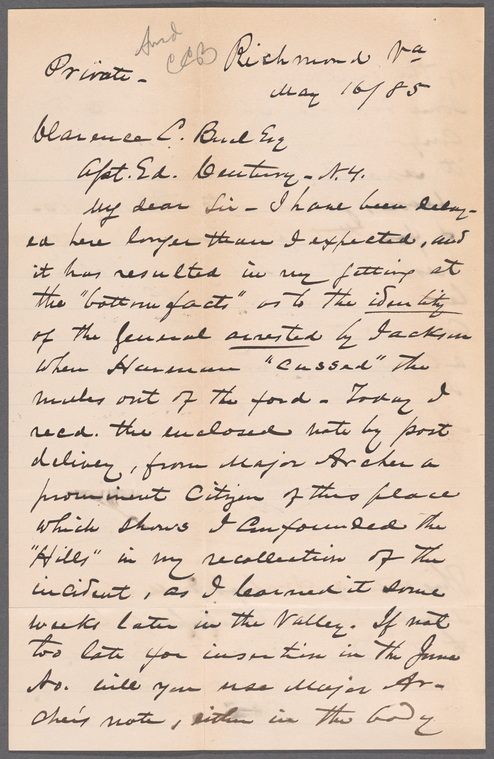 Ansd
CCB
Richmond Va
Private -
May 16/85
Clarence C. Buel Esq
Asst. Ed. Century - N.Y.
My dear Sir - I have been delay-
ed here longer than I expected, and
it has resulted in my getting at
the "bottom facts" as to the identity
of the General arrested by Jackson
when Harman "cussed" the
mules out of the ford - Today I
recd. the enclosed note by post
delivery, from Major Archer a
prominent Citizen of this place
which shows I confounded the
"Hills" in my recollection of the
incident, as I learned it some
weeks later in the Valley. If not
too late for insertion in the June
No. will you use Major Ar-
cher's note, either in the body